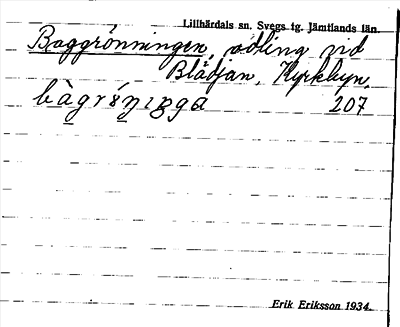 Lillhärdals sn. Svegs tg. Jämtlands län.
Baggrönningen, odling vid
Blädjan, Kyrkbyn.
207
Erik Eriksson 1934.